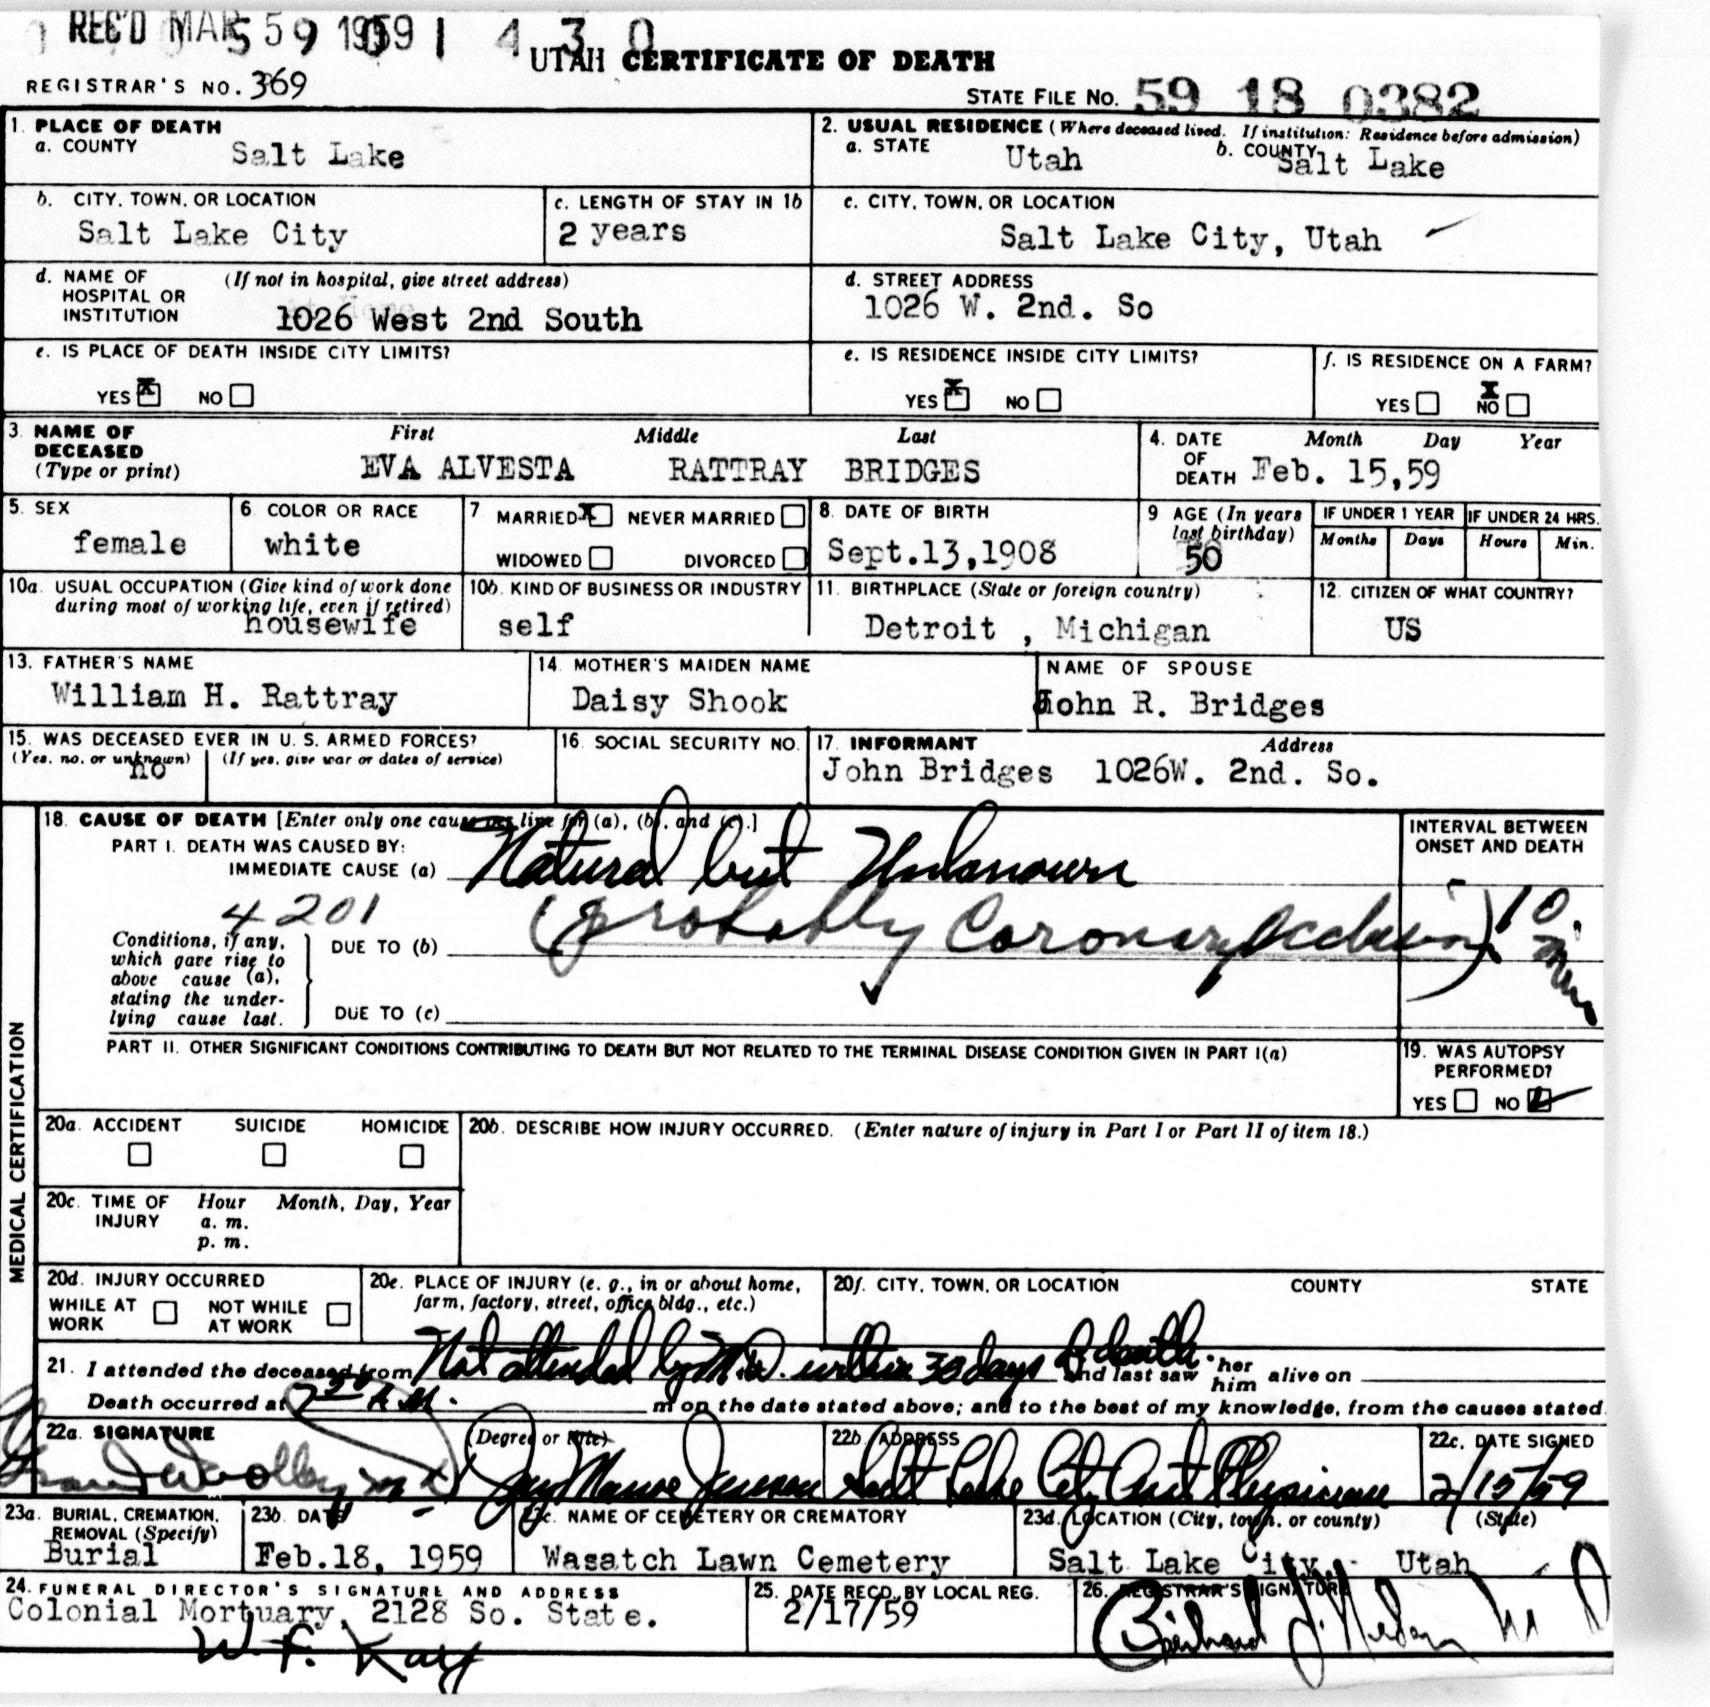 REC'D MAR 5 1959
59 01 430
UTAH CERTIFICATE OF DEATH
REGISTRAR'S NO. 369
STATE FILE NO. 59 18 0382
1. PLACE OF DEATH
a. COUNTY Salt Lake
2. USUAL RESIDENCE (Where deceased lived. If institution: Residence before admission)
a. STATE Utah b. COUNTY Salt Lake
b. CITY, TOWN, OR LOCATION
Salt Lake City
c. LENGTH OF STAY IN 1b
2 years
c. CITY, TOWN, OR LOCATION
Salt Lake City, Utah
d. NAME OF HOSPITAL OR INSTITUTION (If not in hospital, give street address)
1026 West 2nd South
d. STREET ADDRESS
1026 W. 2nd. So
e. IS PLACE OF DEATH INSIDE CITY LIMITS?
YES X NO
e. IS RESIDENCE INSIDE CITY LIMITS?
YES X NO
f. IS RESIDENCE ON A FARM?
YES NO X
3. NAME OF DECEASED (Type or print)
First Middle Last
EVA ALVESTA RATTRAY BRIDGES
4. DATE OF DEATH Month Day Year
Feb. 15,59
5. SEX
female
6. COLOR OR RACE
white
7 MARRIED X NEVER MARRIED
WIDOWED DIVORCED
8. DATE OF BIRTH
Sept.13,1908
9 AGE (In years last birthday)
50
IF UNDER 1 YEAR
Months Days
IF UNDER 24 HRS.
Hours Min.
10a. USUAL OCCUPATION (Give kind of work done during most of working life, even if retired)
housewife
10b. KIND OF BUSINESS OR INDUSTRY
self
11. BIRTHPLACE (State or foreign country)
Detroit , Michigan
12. CITIZEN OF WHAT COUNTRY?
US
13. FATHER'S NAME
William H. Rattray
14. MOTHER'S MAIDEN NAME
Daisy Shook
NAME OF SPOUSE
John R. Bridges
15. WAS DECEASED EVER IN U. S. ARMED FORCES?
(Yes, no, or unknown) (If yes, give war or dates of service)
no
16. SOCIAL SECURITY NO.
17. INFORMANT Address
John Bridges 1026W. 2nd. So.
MEDICAL CERTIFICATION
18. CAUSE OF DEATH [Enter only one cause per line for (a), (b), and (c).]
PART I. DEATH WAS CAUSED BY:
IMMEDIATE CAUSE (a) Natural but Unknown
4201
(probably Coronary Occlusion)
Conditions, if any, which gave rise to above cause (a), stating the underlying cause last.
DUE TO (b)
DUE TO (c)
INTERVAL BETWEEN ONSET AND DEATH
10 min
PART II. OTHER SIGNIFICANT CONDITIONS CONTRIBUTING TO DEATH BUT NOT RELATED TO THE TERMINAL DISEASE CONDITION GIVEN IN PART I(a)
19. WAS AUTOPSY PERFORMED?
YES NO
20a. ACCIDENT SUICIDE HOMICIDE
20b. DESCRIBE HOW INJURY OCCURRED. (Enter nature of injury in Part I or Part II of item 18.)
20c. TIME OF INJURY Hour Month, Day, Year
a. m.
p. m.
20d. INJURY OCCURRED
WHILE AT WORK NOT WHILE AT WORK
20e. PLACE OF INJURY (e. g., in or about home, farm, factory, street, office bldg., etc.)
20f. CITY, TOWN, OR LOCATION COUNTY STATE
21. I attended the deceased from Not attended by M.D. within 30 days of death. and last saw her him alive on
Death occurred at 7 A.M. m on the date stated above; and to the best of my knowledge, from the causes stated.
22a. SIGNATURE (Degree or title)
Woolley M D
22b. ADDRESS
Salt Lake City Asst Physician
22c. DATE SIGNED
2/15/59
23a. BURIAL, CREMATION, REMOVAL (Specify)
Burial
23b. DATE
Feb.18, 1959
23c. NAME OF CEMETERY OR CREMATORY
Wasatch Lawn Cemetery
23d. LOCATION (City, town, or county) (State)
Salt Lake City, Utah
24. FUNERAL DIRECTOR'S SIGNATURE AND ADDRESS
Colonial Mortuary, 2128 So. State.
W. F. Kay
25. DATE RECD. BY LOCAL REG.
2/17/59
26. REGISTRAR'S SIGNATURE